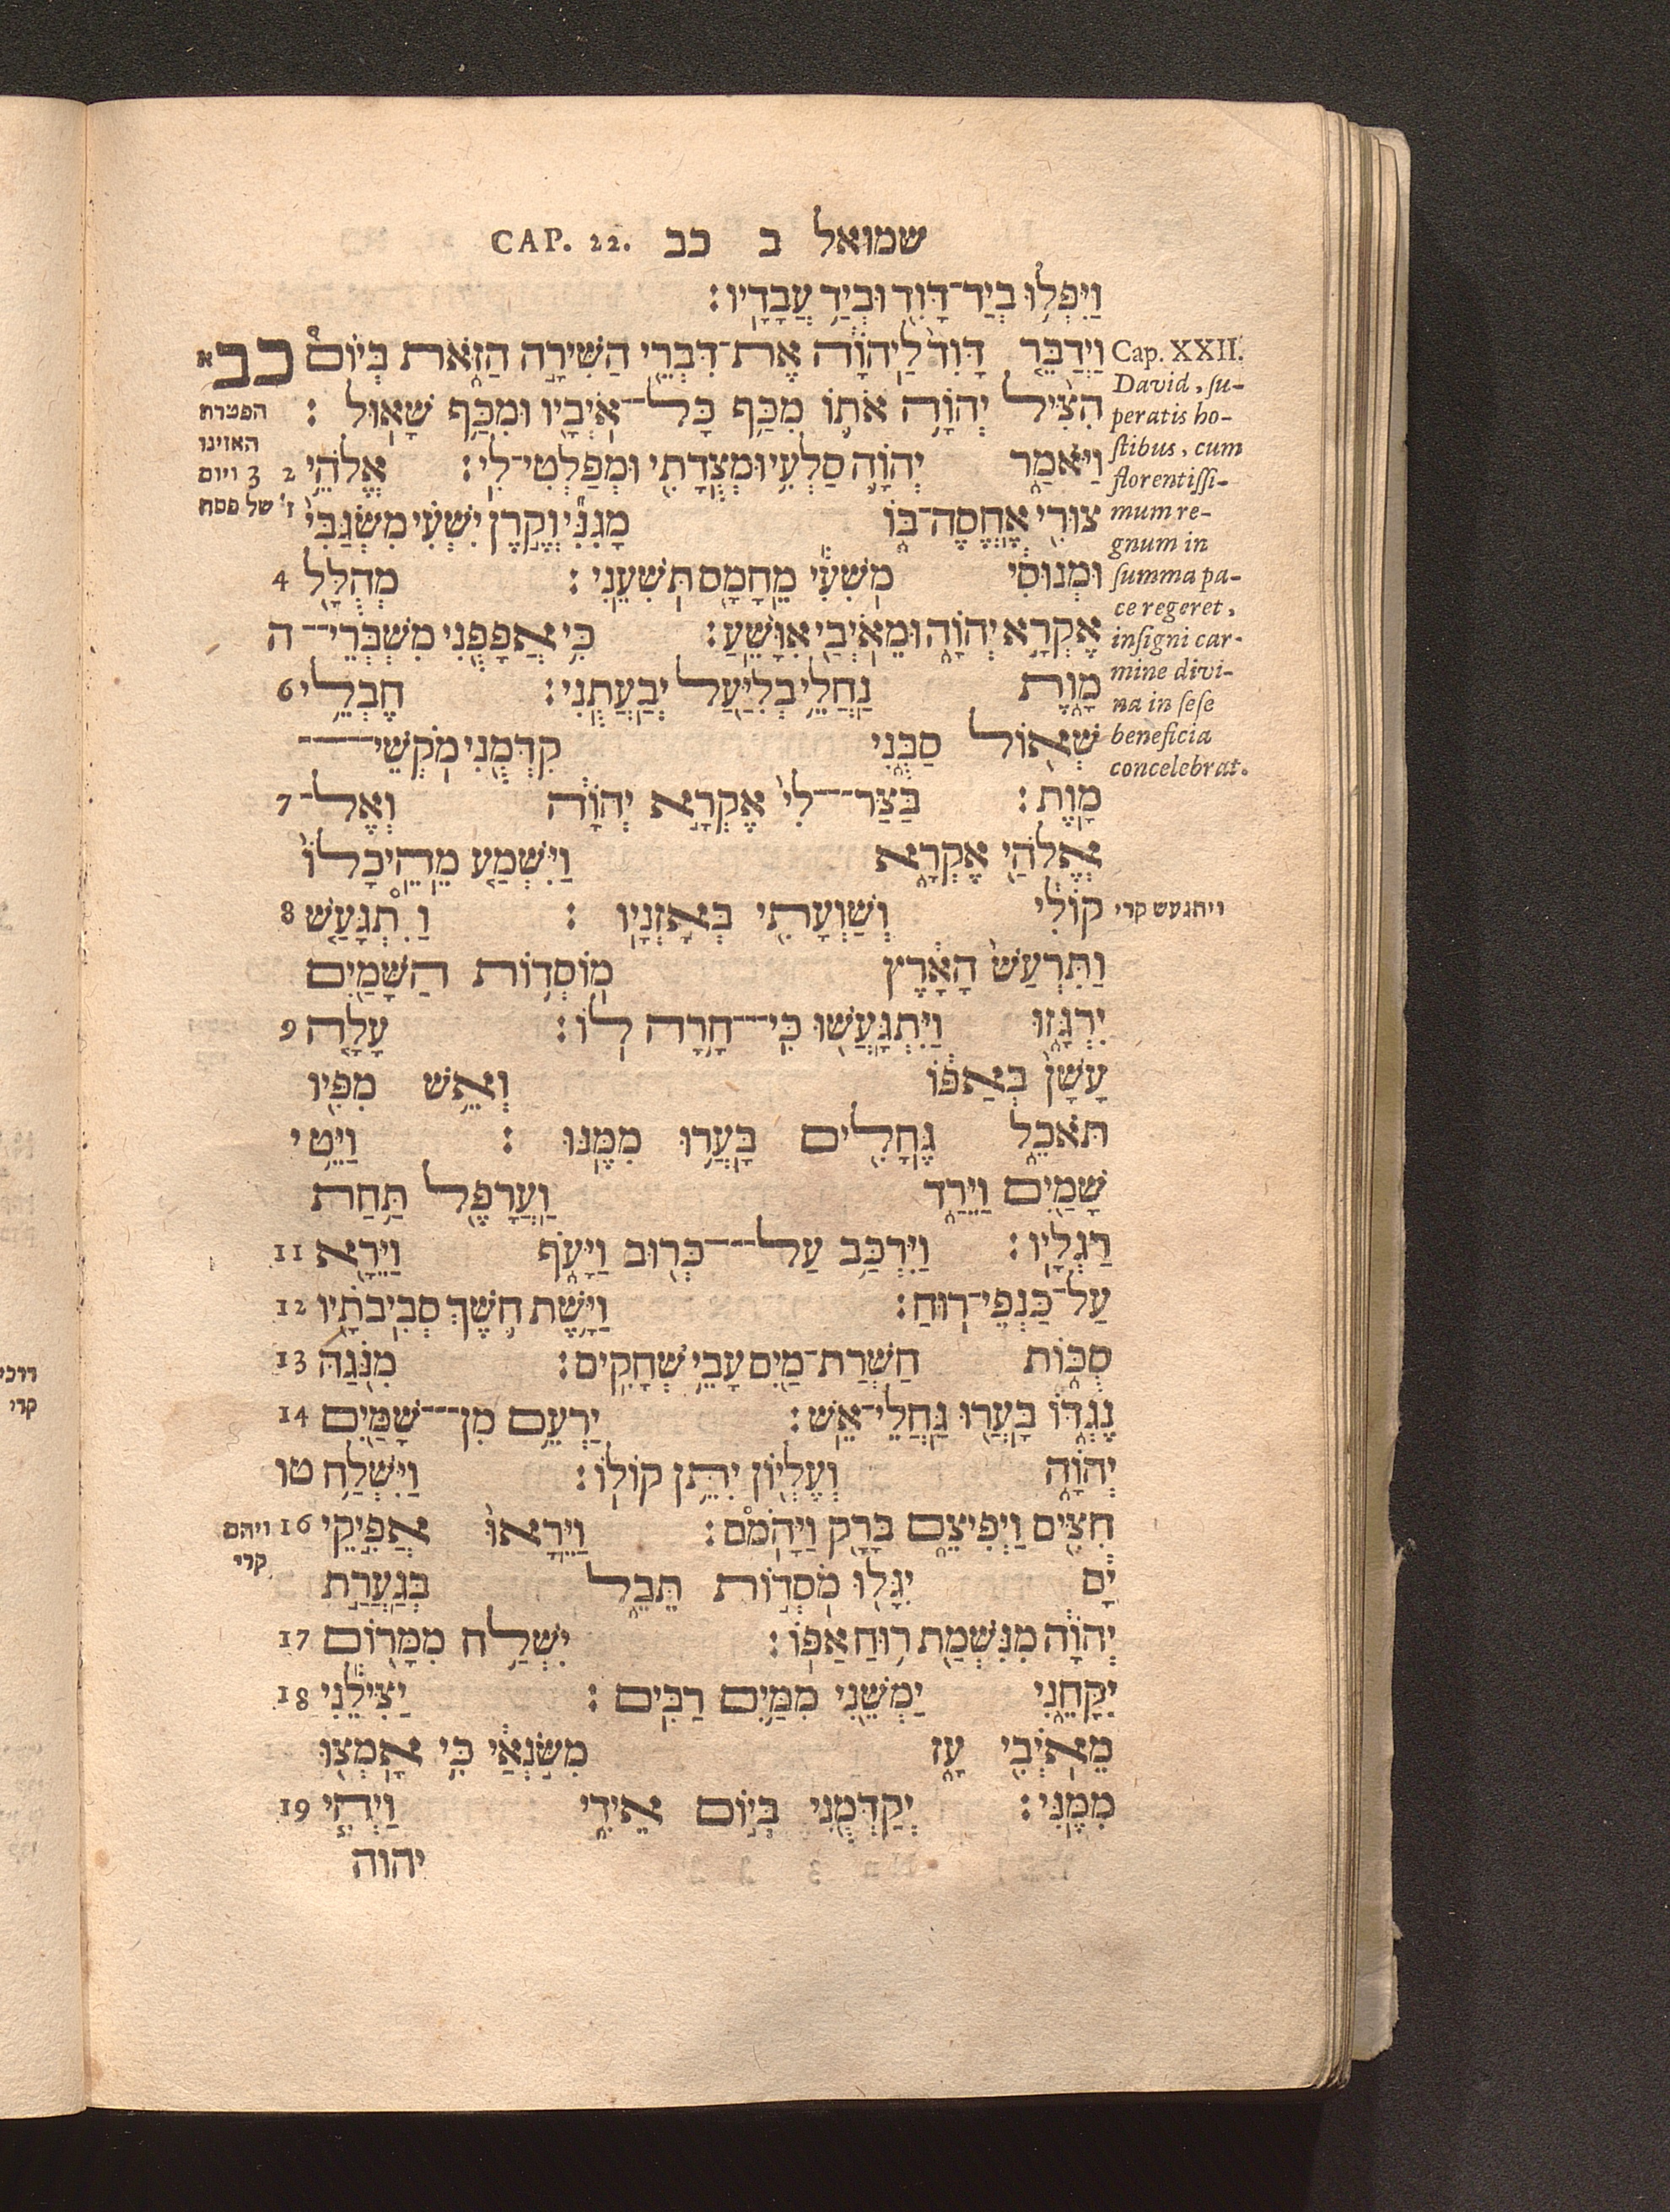 שמואל ב כב CAP. 22.
וַיִּפְּלוּ בְיַד־דָּוִד וּבְיַד עֲבָדָיו׃
וַיְדַבֵּר דָּוִד לַיהוָֹה אֶת־דִּבְרֵי הַשִּׁירָה הַזֹּאת בְּיוֹם כב א
הִצִּיל יְהוָֹה אֹתוֹ מִכַּף כָּל־אֹיְבָיו וּמִכַּף שָׁאוּל׃
וַיֹּאמַר יְהוָֹה סַלְעִי וּמְצֻדָתִי וּמְפַלְטִי־לִי׃ אֱלֹהֵי 2 3
צוּרִי אֶחֱסֶה־בּוֹ מָגִנִּי וְקֶרֶן יִשְׁעִי מִשְׂגַּבִּי
וּמְנוּסִי מֹשִׁעִי מֵחָמָס תֹּשִׁעֵנִי׃ מְהֻלָּל 4
אֶקְרָא יְהוָֹה וּמֵאֹיְבַי אִוָּשֵׁעַ׃ כִּי אֲפָפֻנִי מִשְׁבְּרֵי־ ה
מָוֶת נַחֲלֵי בְלִיַּעַל יְבַעֲתֻנִי׃ חֶבְלֵי 6
שְׁאוֹל סַבֻּנִי קִדְּמֻנִי מֹקְשֵׁי־
מָוֶת׃ בַּצַּר־לִי אֶקְרָא יְהוָֹה וְאֶל־ 7
אֱלֹהַי אֶקְרָא וַיִּשְׁמַע מֵהֵיכָלוֹ
קוֹלִי וְשַׁוְעָתִי בְּאָזְנָיו׃ וַתִגְּעַשׁ 8
וַתִּרְעַשׁ הָאָרֶץ מוֹסְדוֹת הַשָּׁמַיִם
יִרְגָּזוּ וַיִּתְגָּעֲשׁוּ כִּי־חָרָה לוֹ׃ עָלָה 9
עָשָׁן בְּאַפּוֹ וְאֵשׁ מִפִּיו
תֹּאכֵל גֶּחָלִים בָּעֲרוּ מִמֶּנּוּ׃ וַיֵּט י
שָׁמַיִם וַיֵּרַד וַעֲרָפֶל תַּחַת
רַגְלָיו׃ וַיִּרְכַּב עַל־כְּרוּב וַיָּעֹף וַיֵּרָא 11
עַל־כַּנְפֵי־רוּחַ׃ וַיָּשֶׁת חֹשֶׁךְ סְבִיבֹתָיו 12
סֻכּוֹת חַשְׁרַת־מַיִם עָבֵי שְׁחָקִים׃ מִנֹּגַהּ 13
נֶגְדּוֹ בָּעֲרוּ גַּחֲלֵי־אֵשׁ׃ יַרְעֵם מִן־שָׁמַיִם 14
יְהוָֹה וְעֶלְיוֹן יִתֵּן קוֹלוֹ׃ וַיִּשְׁלַח טו
חִצִּים וַיְפִיצֵם בָּרָק וַיָּהֻמם׃ וַיֵּרָאוּ אֲפִיקֵי 16
יָם יִגָּלוּ מֹסְדוֹת תֵּבֵל בְּגַעֲרַת
יְהוָֹה מִנִּשְׁמַת רוּחַ אַפּוֹ׃ יִשְׁלַח מִמָּרוֹם 17
יִקָּחֵנִי יַמְשֵׁנִי מִמַּיִם רַבִּים׃ יַצִּילֵנִי 18
מֵאֹיְבִי עָז מִשֹּׂנְאַי כִּי אָמְצוּ
מִמֶּנִּי׃ יְקַדְּמֻנִי בְּיוֹם אֵידִי וַיְהִי 19
יהוה
Cap. XXII.
David, su-
peratis ho-
stibus, cum
florentissi-
mum re-
gnum in
summa pa-
ce regeret,
insigni car-
mine divi-
na in sese
beneficia
concelebrat.
ויתגעש קרי
הפטרת
האזינו
ויום
ז' של פסח
ויהם
קרי